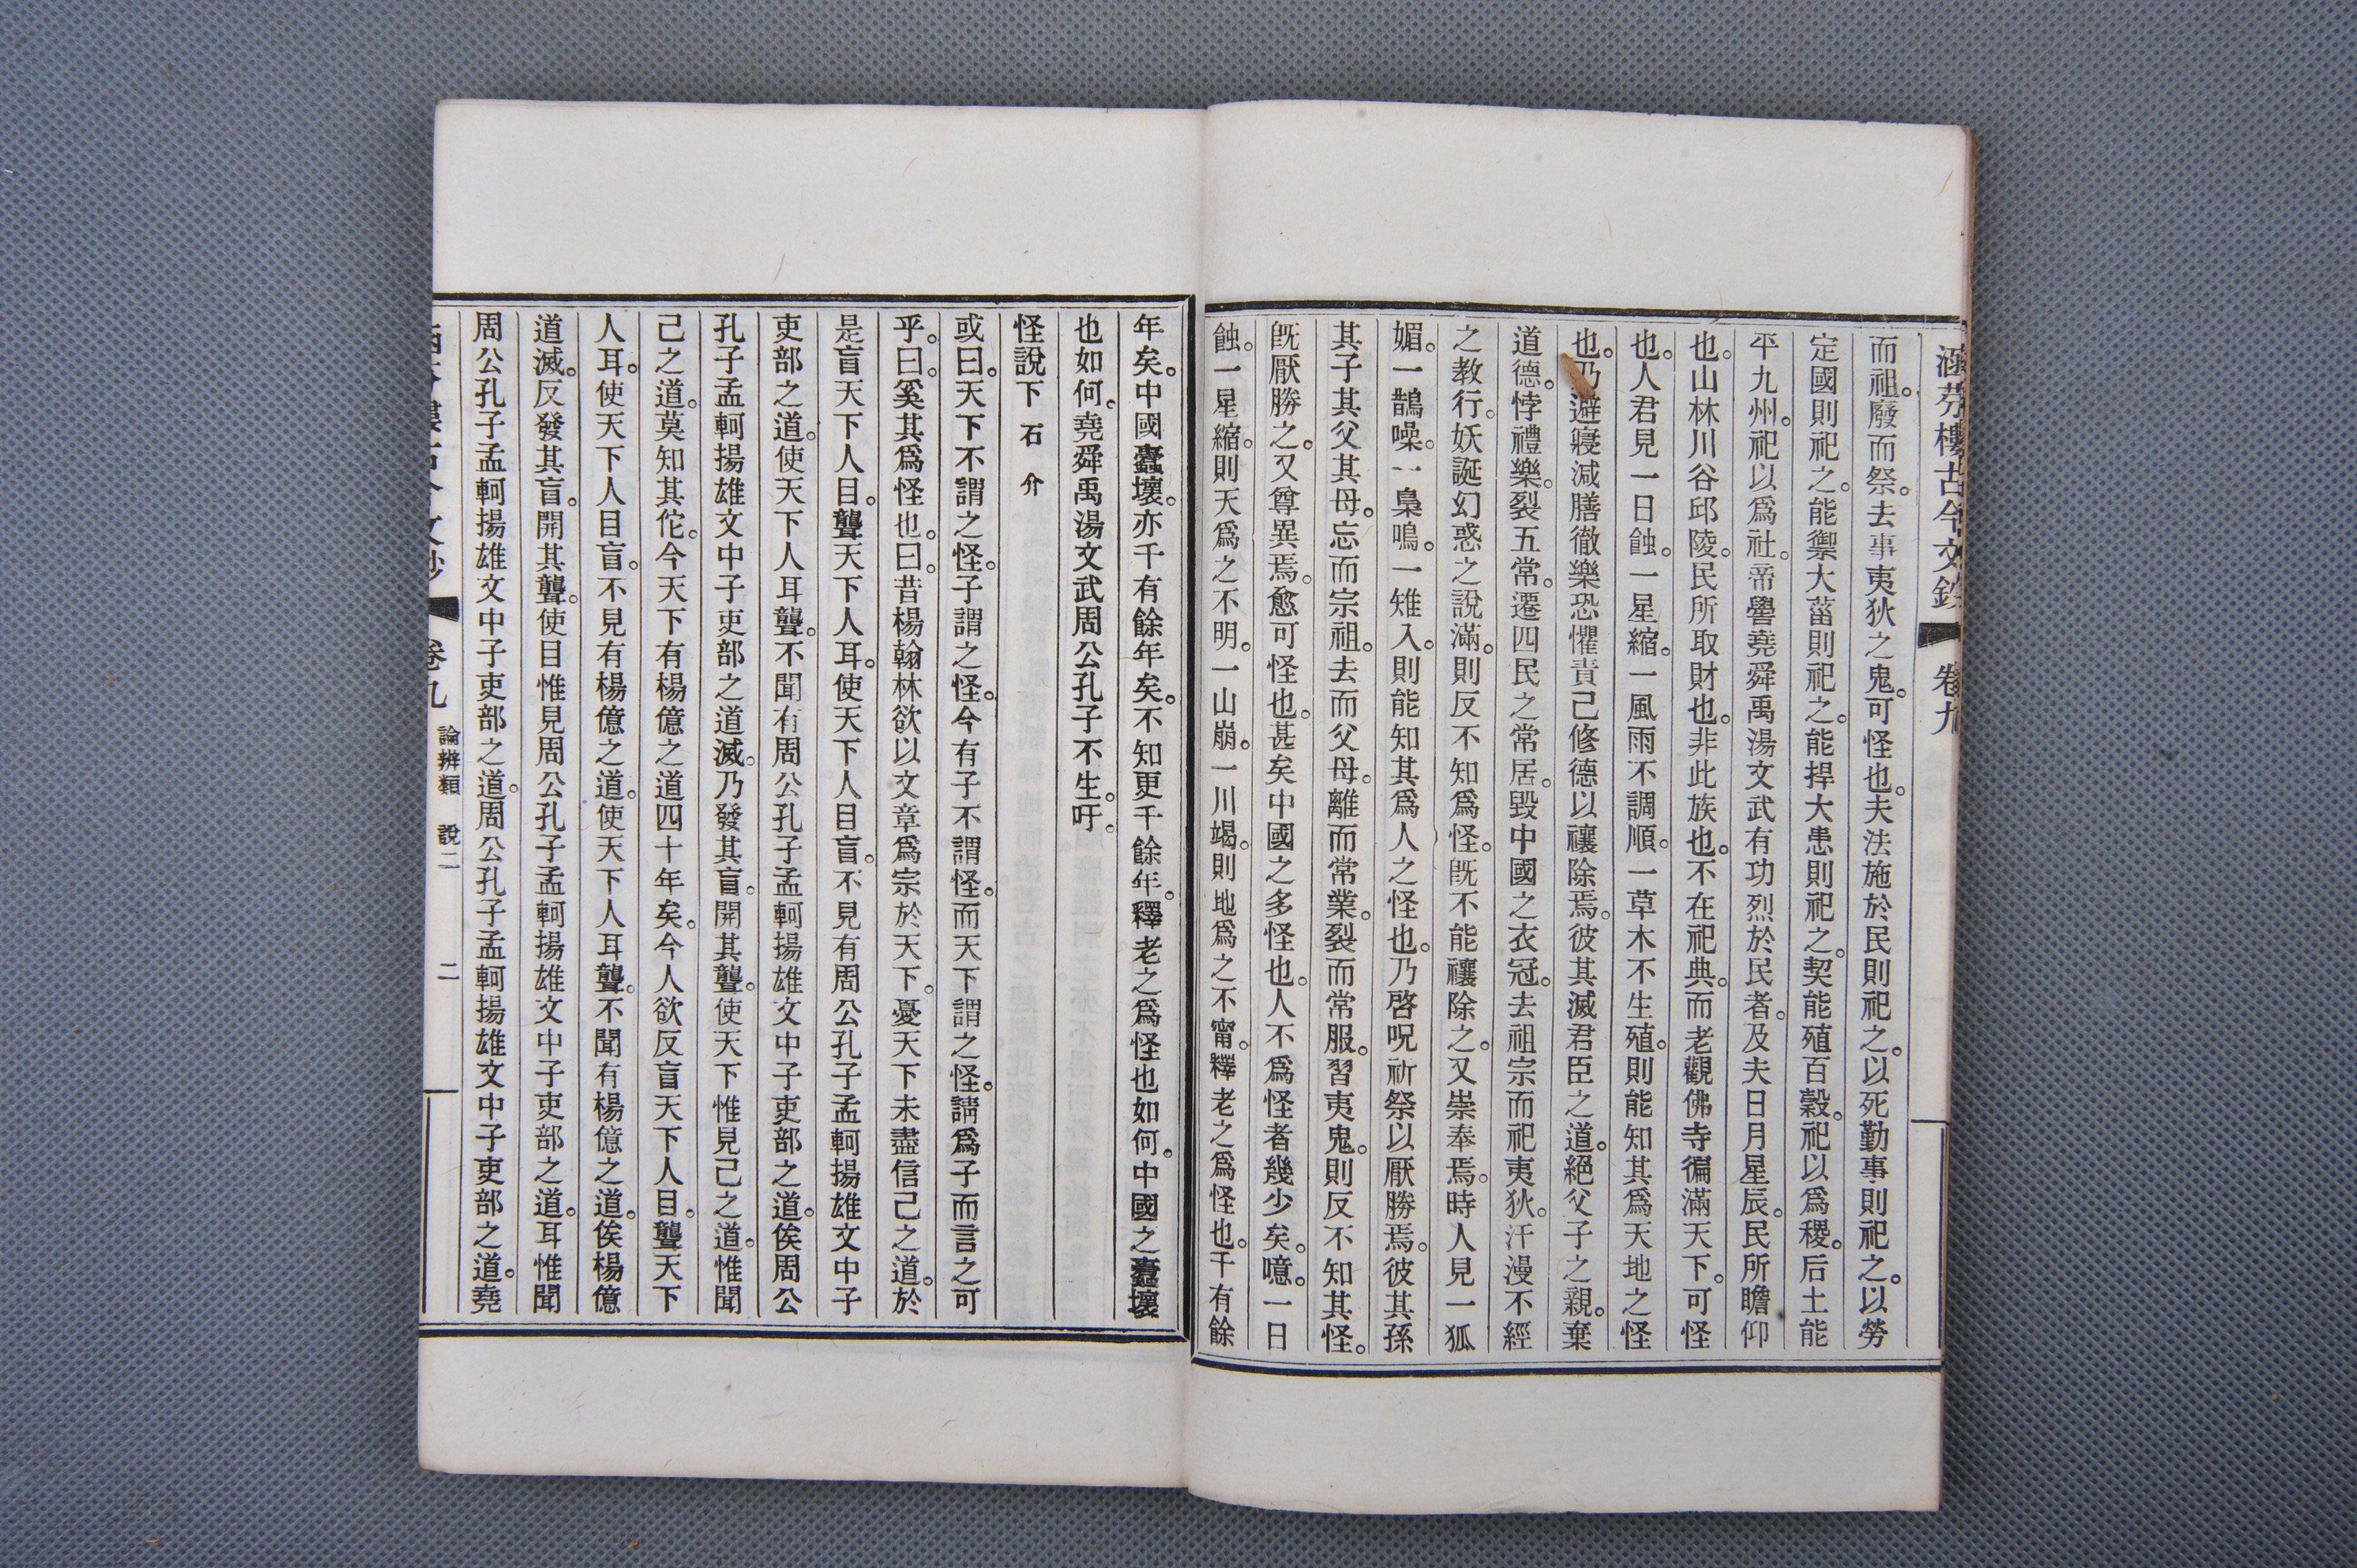 涵芬樓古今文鈔 卷九
而祖。廢而祭。去事夷狄之鬼。可怪也。夫法施於民則祀之。以死勤事則祀之。以勞
定國則祀之。能禦大菑則祀之。能捍大患則祀之。契能殖百穀。祀以爲稷。后土能
平九州。祀以爲社。帝嚳堯舜禹湯文武有功烈於民者。及夫日月星辰。民所瞻仰
也。山林川谷邱陵。民所取財也。非此族也。不在祀典。而老觀佛寺徧滿天下。可怪
也。人君見一日蝕。一星縮。一風雨不調順。一草木不生殖。則能知其爲天地之怪
也。乃避寢減膳徹樂恐懼責己修德以禳除焉。彼其滅君臣之道。絕父子之親。棄
道德。悖禮樂。裂五常。遷四民之常居。毀中國之衣冠。去祖宗而祀夷狄。汗漫不經
之教行。妖誕幻惑之說滿。則反不知爲怪。旣不能禳除之。又崇奉焉。時人見一狐
媚。一鵲噪。一梟鳴。一雉入。則能知其爲人之怪也。乃啓呪祈祭以厭勝焉。彼其孫
其子其父其母。忘而宗祖。去而父母。離而常業。裂而常服。習夷鬼。則反不知其怪。
旣厭勝之。又尊異焉。愈可怪也。甚矣中國之多怪也。人不爲怪者幾少矣。噫。一日
蝕。一星縮。則天爲之不明。一山崩。一川竭。則地爲之不甯。釋老之爲怪也。千有餘
年矣。中國蠹壞。亦千有餘年矣。不知更千餘年。釋老之爲怪也如何。中國之蠹壞
也如何。堯舜禹湯文武周公孔子不生。吁。
怪說下 石介
或曰。天下不謂之怪。子謂之怪。今有子不謂怪。而天下謂之怪。請爲子而言之可
乎。曰。奚其爲怪也。曰。昔楊翰林欲以文章爲宗於天下。憂天下未盡信己之道。於
是盲天下人目。聾天下人耳。使天下人目盲。不見有周公孔子孟軻揚雄文中子
吏部之道。使天下人耳聾。不聞有周公孔子孟軻揚雄文中子吏部之道。俟周公
孔子孟軻揚雄文中子吏部之道滅。乃發其盲。開其聾。使天下惟見己之道。惟聞
己之道。莫知其佗。今天下有楊億之道四十年矣。今人欲反盲天下人目。聾天下
人耳。使天下人目盲。不見有楊億之道。使天下人耳聾。不聞有楊億之道。俟楊億
道滅。反發其盲。開其聾。使目惟見周公孔子孟軻揚雄文中子吏部之道。耳惟聞
周公孔子孟軻揚雄文中子吏部之道。周公孔子孟軻揚雄文中子吏部之道。堯
卷九 論辨類 說二 二